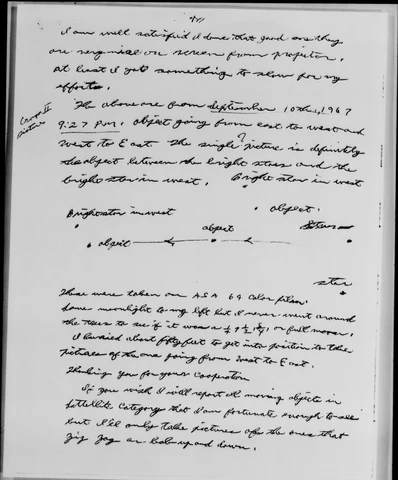 I am well satisfied I done that good as they
are very nice on screen from projector.
at least I got something to show for my
efforts.
The above are from September 10th, 1967
9:27 P.M. object going from east to west and
Group II
picture
West to East the single ? picture is definitly
the object between the bright stars and the
bright star in west. Bright star in west
object.
Bright star in west
object
object
star
These were taken on ASA 64 Color film.
some moonlight to my left but I never went around
the trees to see if it was a or full moon.
I hurried about fifty feet to get into position to take
pictures of the one going from West to East.
Thanking you for your Cooperation
If you wish I will report all moving objects in
Satellite Category that I am fortunate enough to see
but I'll only take pictures of the ones that
zig zag or bob up and down.